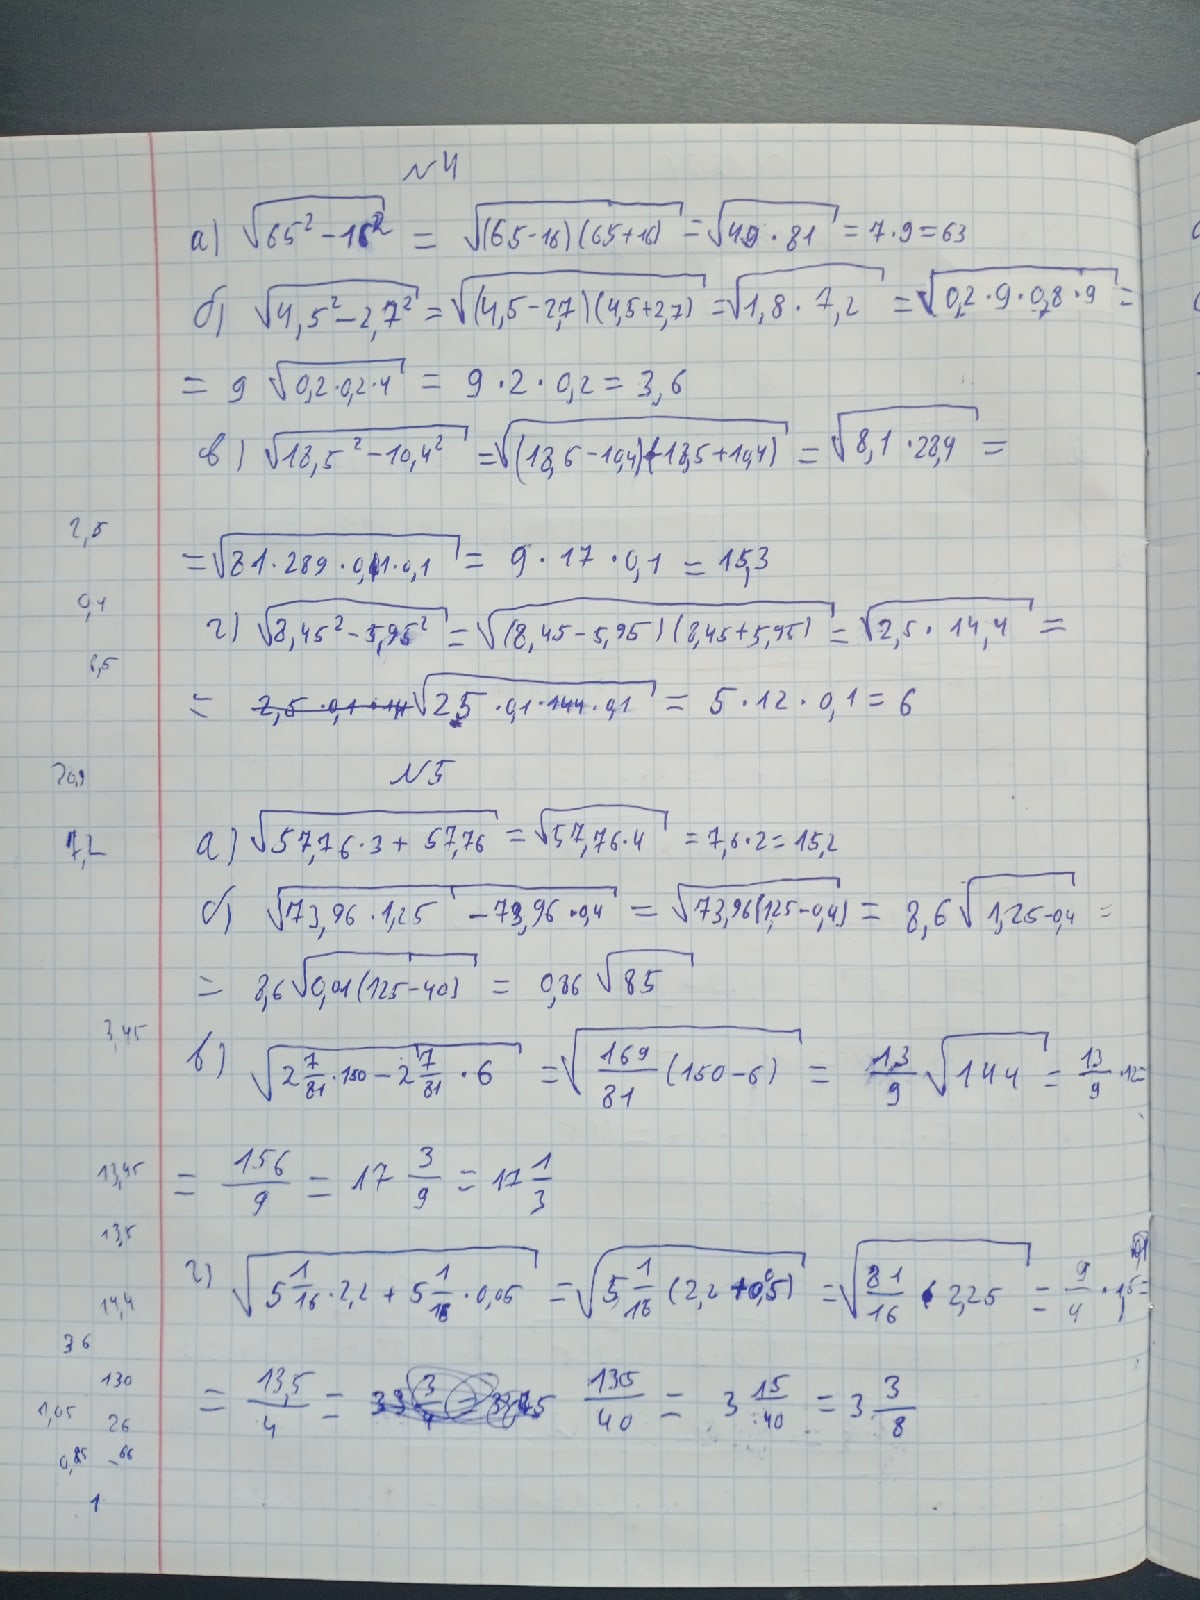 №4
а) √(65² − 16²) = √((65-16)(65+16)) = √(49 · 81) = 7 · 9 = 63
б) √(4,5² − 2,7²) = √((4,5−2,7)(4,5+2,7)) = √(1,8 · 7,2) = √(0,2 · 9 · 0,8 · 9) =
= 9 √(0,2 · 0,2 · 4) = 9 · 2 · 0,2 = 3,6
в) √(18,5² − 10,4²) = √((18,5−10,4)(18,5+10,4)) = √(8,1 · 28,9) =
2,5
= √(81 · 289 · 0,1 · 0,1) = 9 · 17 · 0,1 = 15,3
0,4
г) √(8,45² − 5,95²) = √((8,45−5,95)(8,45+5,95)) = √(2,5 · 14,4) =
6,5
= √(25 · 0,1 · 144 · 0,1) = 5 · 12 · 0,1 = 6
20,9
№5
7,2
а) √(57,76 · 3 + 57,76) = √(57,76 · 4) = 7,6 · 2 = 15,2
б) √(73,96 · 1,25 − 73,96 · 0,4) = √(73,96(1,25−0,4)) = 8,6 √(1,25-0,4) =
= 8,6 √(0,01(125−40)) = 0,86 √85
3,45
в) √(2 7/81 · 150 − 2 7/81 · 6) = √(169/81 (150−6)) = 13/9 √144 = 13/9 · 12 =
13,45
= 156/9 = 17 3/9 = 17 1/3
13,5
г) √(5 1/16 · 2,2 + 5 1/16 · 0,05) = √(5 1/16 (2,2+0,05)) = √(81/16 · 2,25) = 9/4 · 1,5 =
14,4
36
130
= 13,5/4 = 135/40 = 3 15/40 = 3 3/8
1,05
26
0,85
66
1